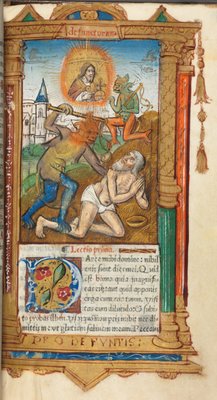 ¶ Lectio prima.
Parce mihi domine: nihil
enim sunt dies mei. Quid
est homo quia magnifi
cas eum: aut quid apponis
erga eum cor tuum. Visi
tas eum diluculo: et
subito probas illum. Usquequo non parcis mihi nec di
mittis me: ut glutiam saliuam meam. Peccaui
PRO DEFVNTIS